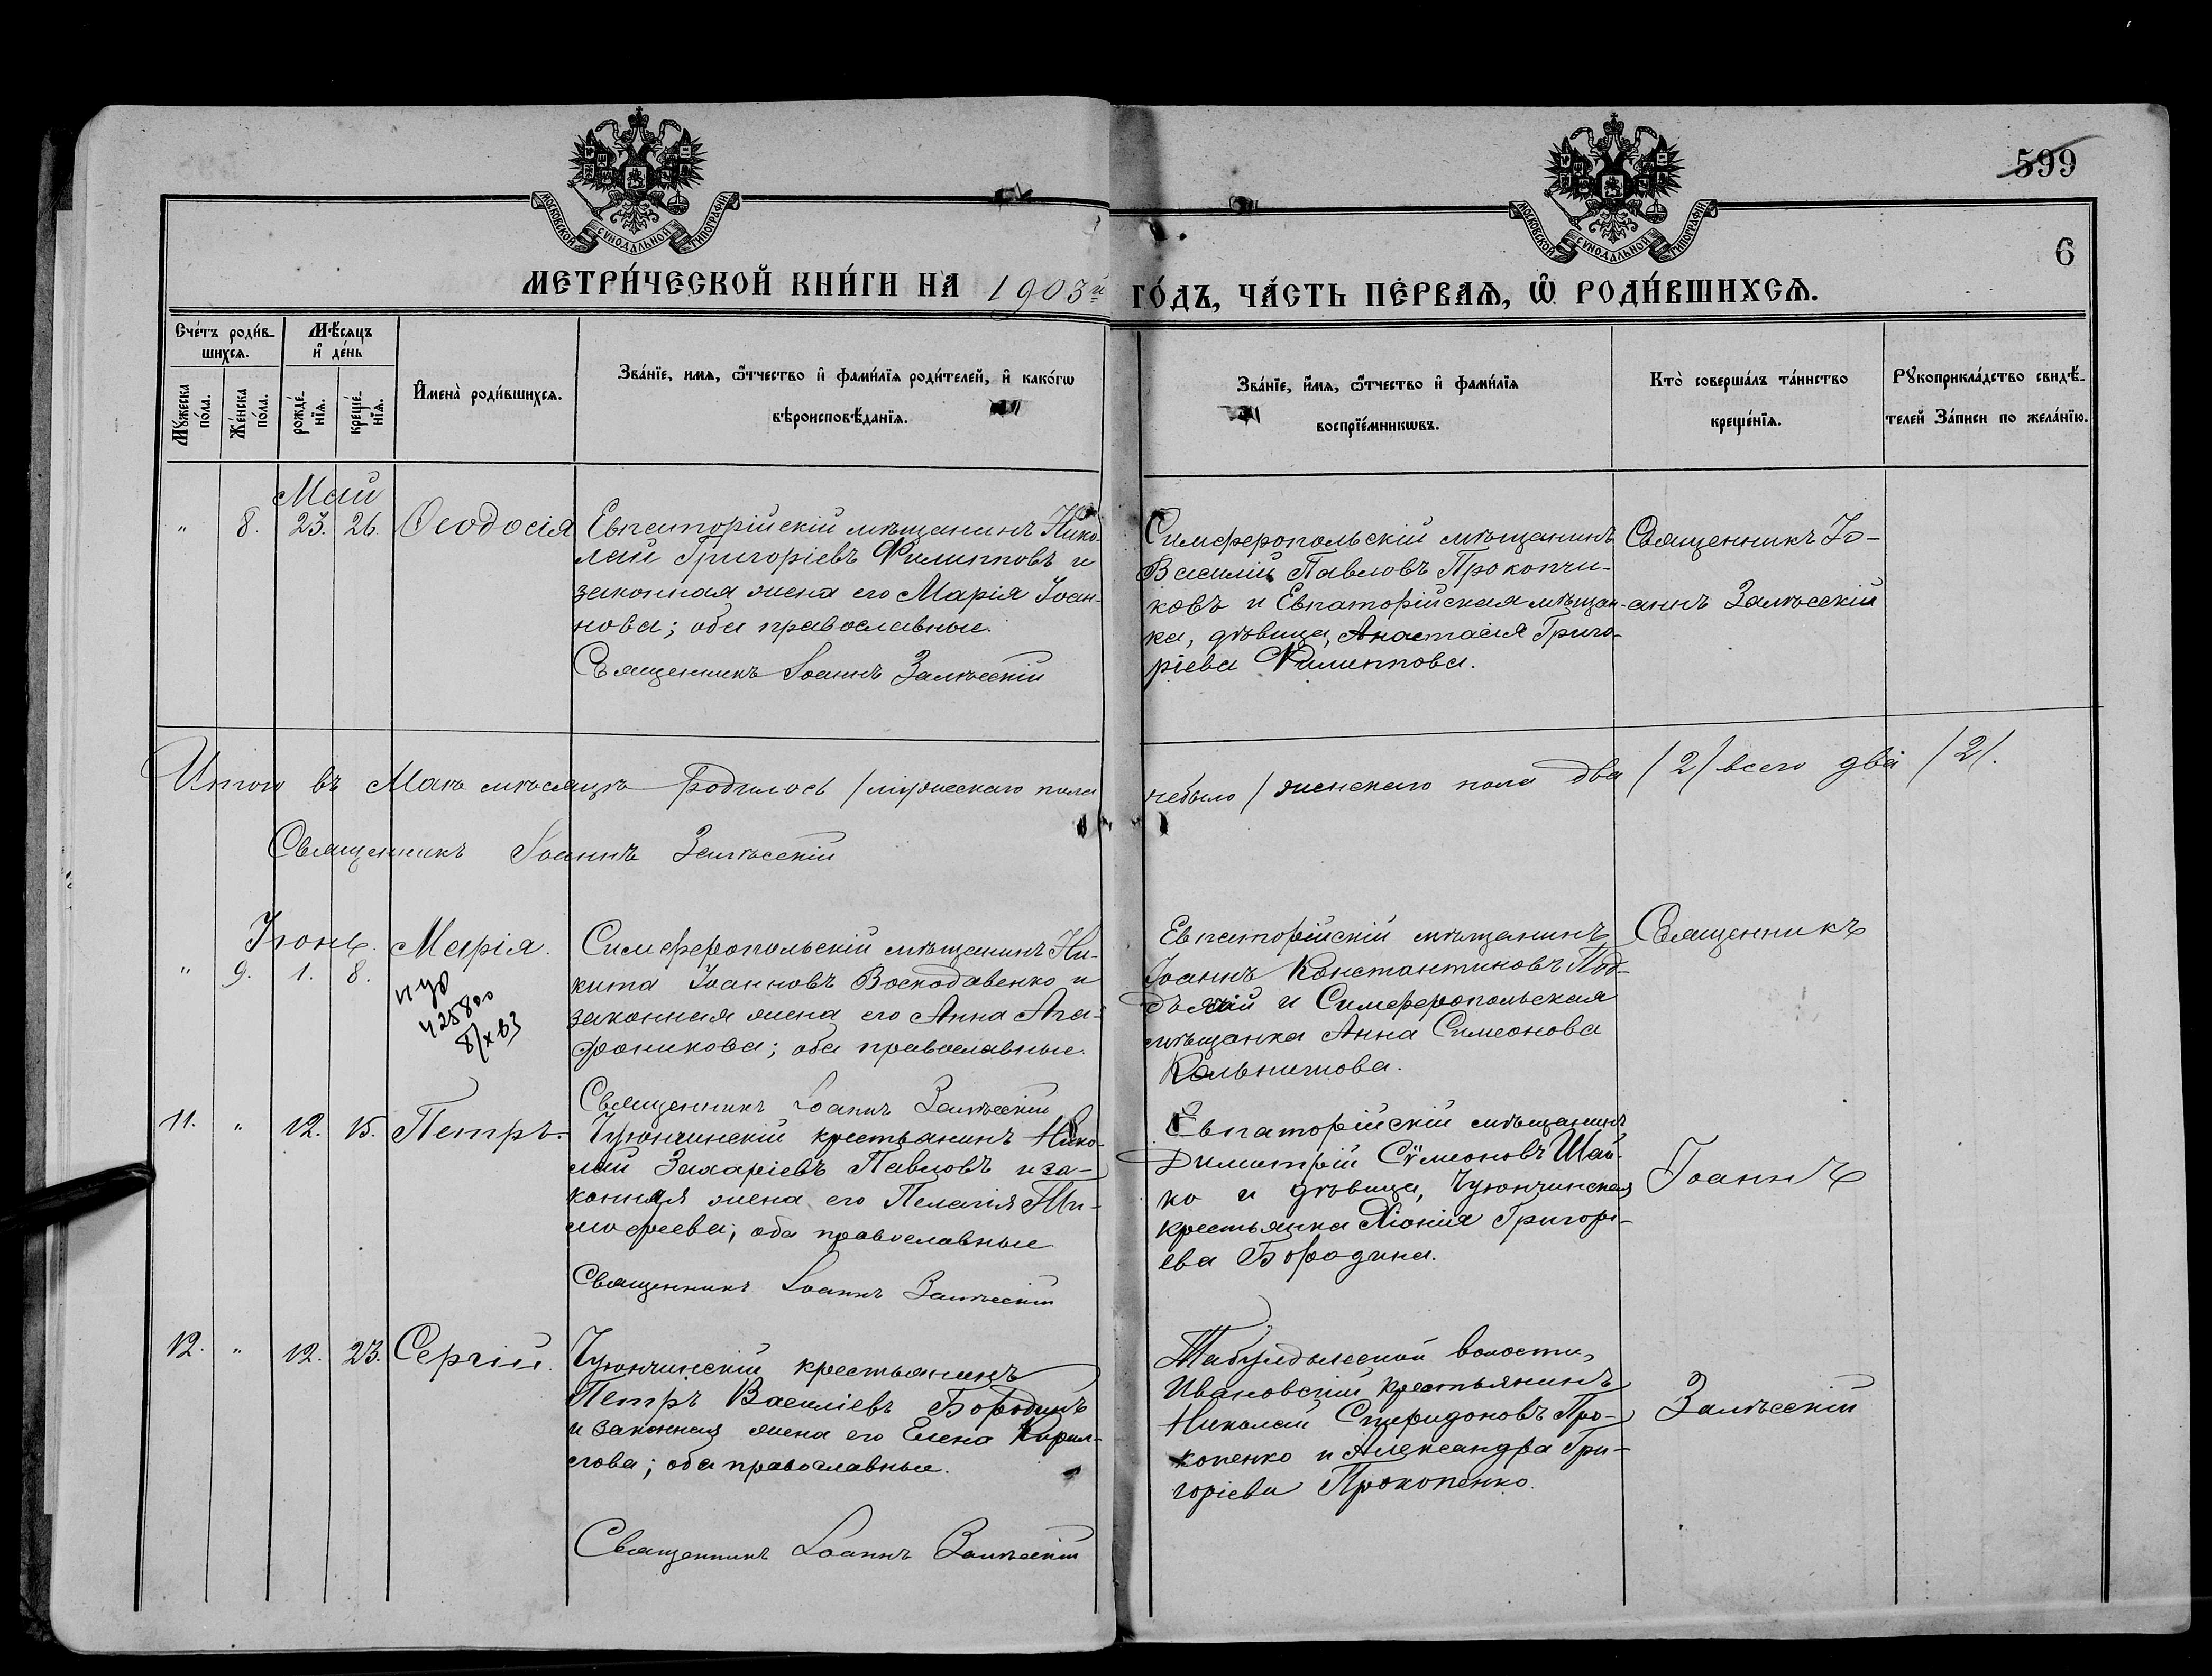 МОСКОВСКОЙ СѴНОДАЛЬНОЙ ТИПОГРАФІИ
МОСКОВСКОЙ СѴНОДАЛЬНОЙ ТИПОГРАФІИ
599
6
МЕТРИ́ЧЕСКОЙ КНИ́ГИ НА 1903й
ГО́ДЪ, ЧА́СТЬ ПЕ́РВАѦ, Ѡ РОДИ́ВШИХСѦ.
Сче́тъ роди́в-
шихсѧ.
Мꙋ́жеска
по́ла.
Же́нска
по́ла.
Мѣ́сяцъ
и҆ де́нь
рожде́-
нїѧ.
креще́-
нїѧ.
И҆мена̀ роди́вшихсѧ.
Зва́нїе, имѧ, ѻ҆́тчество и҆ фами́лїѧ роди́телей, и҆ како́гѡ
вѣроисповѣ́данїѧ.
Зва́нїе, и҆́мѧ, ѻ҆́тчество и҆ фами́лїѧ
воспрїе́мникѡвъ.
Кто̀ соверша́лъ та́инство
креще́нїѧ.
Рꙋкоприкла́дство свидѣ́-
телей За́писи по жела́нїю.
Май
" 8. 23. 26. Ѳеодосія
Евпаторійскій мѣщанинъ Нико-
лай Григоріевъ Филипповъ и
законная жена его Марія Іоан-
нова; оба православные.
Священникъ Іоаннъ Залѣсскій
Симферопольскій мѣщанинъ
Василій Павловъ Прокопчи-
ковъ и Евпаторійская мѣщан-
ка, дѣвица, Анастасія Григо-
ріева Филиппова.
Священникъ Іо-
аннъ Залѣсскій
Итого въ Маѣ мѣсяцѣ родилось /мужескаго пола
небыло/ женскаго пола два /2/ всего два /2/.
Священникъ Іоаннъ Залѣсскій
Іюнь.
" 9. 1. 8. Марія.
42580
8/X 03
Симферопольскій мѣщанинъ Ни-
кита Іоанновъ Воскодавенко и
законная жена его Анна Ага-
фоникова; оба православные.
Священникъ Іоаннъ Залѣсскій
Евпаторійскій мѣщанинъ
Іоаннъ Константиновъ Под-
и Симферопольская
мѣщанка Анна Симеонова
Священникъ
11. " 12. 15. Петръ.
Чуюнчинскій крестьянинъ Нико-
лай Захаріевъ Павловъ и за-
конная жена его Пелагія Ти-
мофеева; оба православные
Священникъ Іоаннъ Залѣсскій
Евпаторійскій мѣщанинъ
Димитрій Сѵмеоновъ Шай-
ко и дѣвица, Чуюнчинская
крестьянка Хіонія Григорі-
ева Бородина.
Іоаннъ
12. " 12. 23. Сергій.
Чуюнчинскій крестьянинъ
Петръ Василіевъ Бородинъ
и законная жена его Елена Кирил-
лова; оба православные.
Священникъ Іоаннъ Залѣсскій
Табулдынской волости,
Ивановскій крестьянинъ
Николай Спиридоновъ Про-
копенко и Александра Гри-
горіева Прокопенко.
Залѣсскій